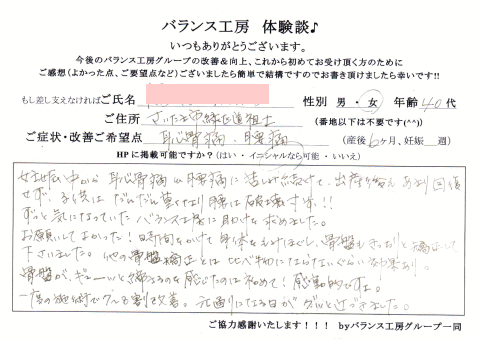 バランス工房 体験談♪
いつもありがとうございます。
今後のバランス工房グループの改善＆向上、これから初めてお受け頂く方のために
ご感想（よかった点、ご要望点など）ございましたら簡単で結構ですのでお書き頂けましたら幸いです!!
もし差し支えなければご氏名 性別 男・女 年齢 40代
ご住所 さいたま市緑区道祖土 （番地以下は不要です(^^)）
ご症状・改善ご希望点 恥骨痛・腰痛 （産後6ヶ月、妊娠 週）
HPに掲載可能ですか？（はい・イニシャルなら可能・いいえ）
妊娠中から恥骨痛や腰痛に苦しみ続けて、出産を終えあまり回復
せず、子供はだんだん重くなり腰は破壊寸前!!
ずっと気になっていたバランス工房に助けを求めました。
お願いしてよかった！時間をかけて身体をもみほぐし、骨盤もきっちりと矯正して
下さいました。他の骨盤矯正とは比べ物にならないぐらい効果あり。
骨盤が、ギューッと縮まるのを感じたのは初めて！感動的ですよ。
一度の施術で 割改善。元通りになる日がグッと近づきました。
ご協力感謝いたします！！！ byバランス工房グループ一同